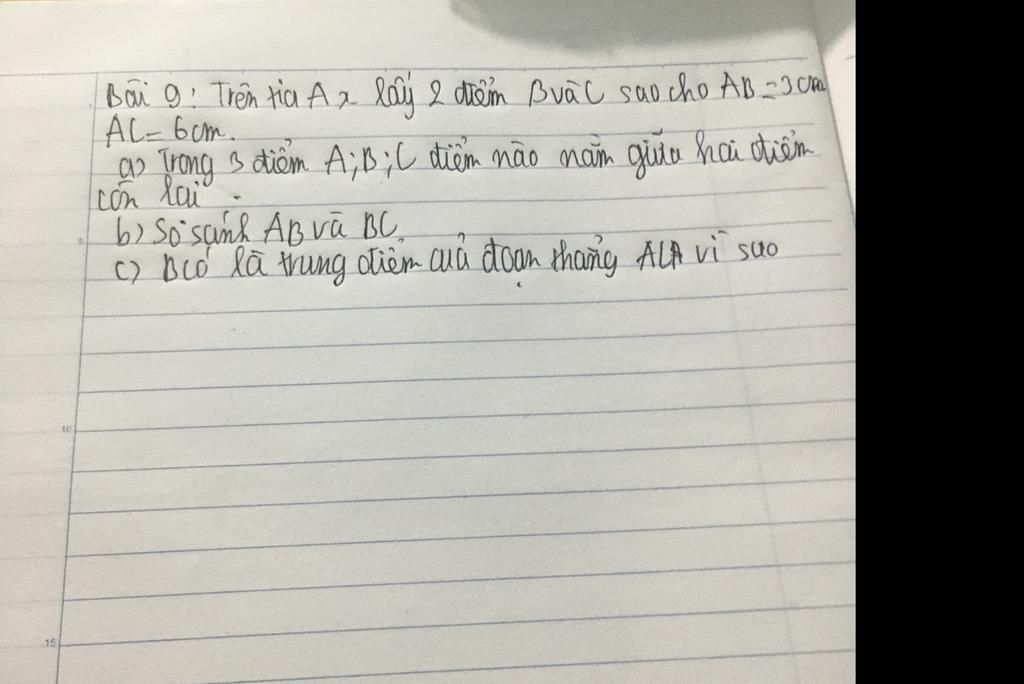 Bài 9: Trên tia Ax lấy 2 điểm B và C sao cho AB = 3cm
AC = 6cm.
a) Trong 3 điểm A; B; C điểm nào nằm giữa hai điểm
còn lại.
b) So sánh AB và BC
c) B có là trung điểm của đoạn thẳng AC vì sao
10
15